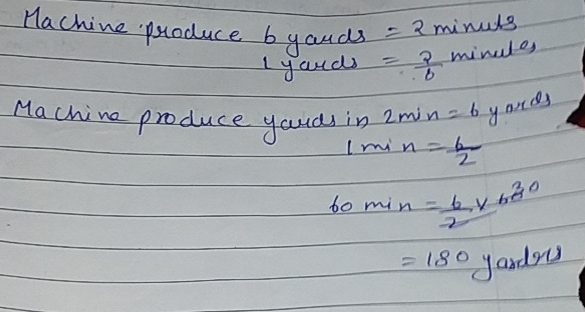 Machine produce 6 yards = 2 minuts
1 yards = 2/6 minutes
Machine produce yards in 2min = 6 yards
1 min = 6/2
60 min = 6/2 x 60 30
= 180 yarders